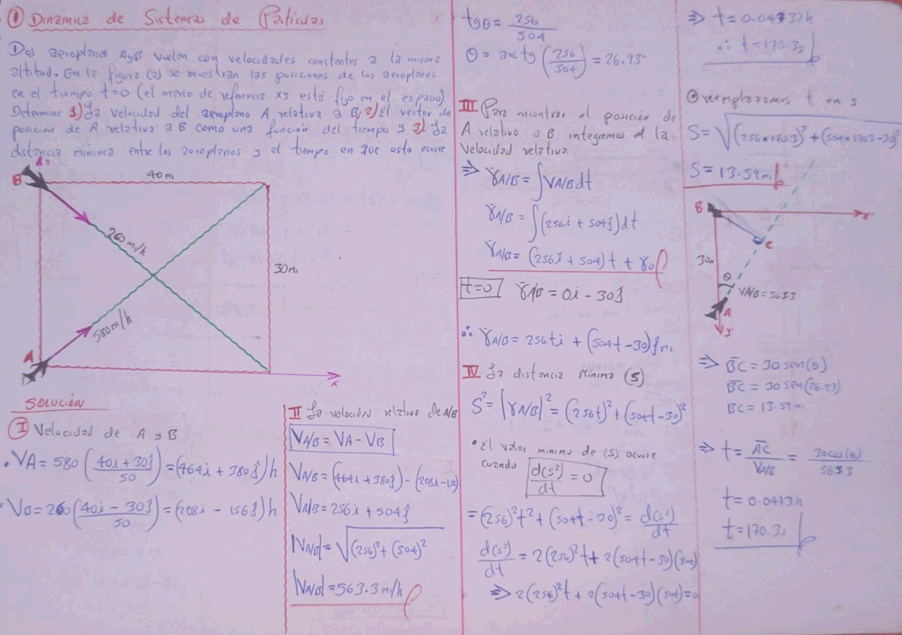 ① Dinámica de Sistemas de Partículas
Dos aeroplanos A y B vuelan con velocidades constantes a la misma
altitud. En la figura (a) se muestran las posiciones de los aeroplanos
en el tiempo t=0 (el marco de referencia xy está fijo en el espacio)
Determine 1) La velocidad del aeroplano A relativa a B, 2) El vector de
posición de A relativa a B como una función del tiempo y 3) La
distancia mínima entre los aeroplanos y el tiempo en que esto ocurre
B
40mi
260 mi/h
30mi
580 mi/h
A
x
Solución
I Velocidad de A y B
• VA = 580 (40i + 30j / 50) = (464i + 380j) h
• VB = 260 (40i - 30j / 50) = (208i - 156j) h
II La velocidad relativa de A/B
VA/B = VA - VB
VA/B = (464i + 380j) - (208i - 156j)
VA/B = 256i + 504j
= √(256)² + (504)²
= 563.3 mi/h
tgθ = 256 / 504
θ = arctg (256 / 504) = 26.93°
III Para mientras el posición de
A relativo a B integremos al la
velocidad relativa.
⇒ rA/B = ∫VA/B dt
rA/B = ∫(256i + 504j)dt
rA/B = (256i + 504)t + r₀
t=0 rA/B = 0i - 30j
∴ rA/B = 256ti + (504t - 30)j mi
IV La distancia Mínima (S)
S² = |rA/B|² = (256t)² + (504t - 30)²
• El valor mínimo de (S) ocurre
cuando d(s²)/dt = 0
= (256)²t² + (504t - 30)² = d(s²)/dt
d(s²)/dt = 2(256)²t + 2(504t - 30)(504)
⇒ 2(256)²t + 2(504t - 30)(504) = 0
⇒ t = 0.04732h
∴ t = 170.3s
⊙ reemplazamos t en s
S = √(256×170.3)² + (504×170.3 - 30)²
S = 13.59mi
B
x'
C
30mi
θ
VA/B = 563.3
A
y'
⇒ BC = 30 sen(θ)
BC = 30 sen(26.93)
BC = 13.59mi
⇒ t = AC / VA/B = 30cos(θ) / 563.3
t = 0.0473h
t = 170.3s